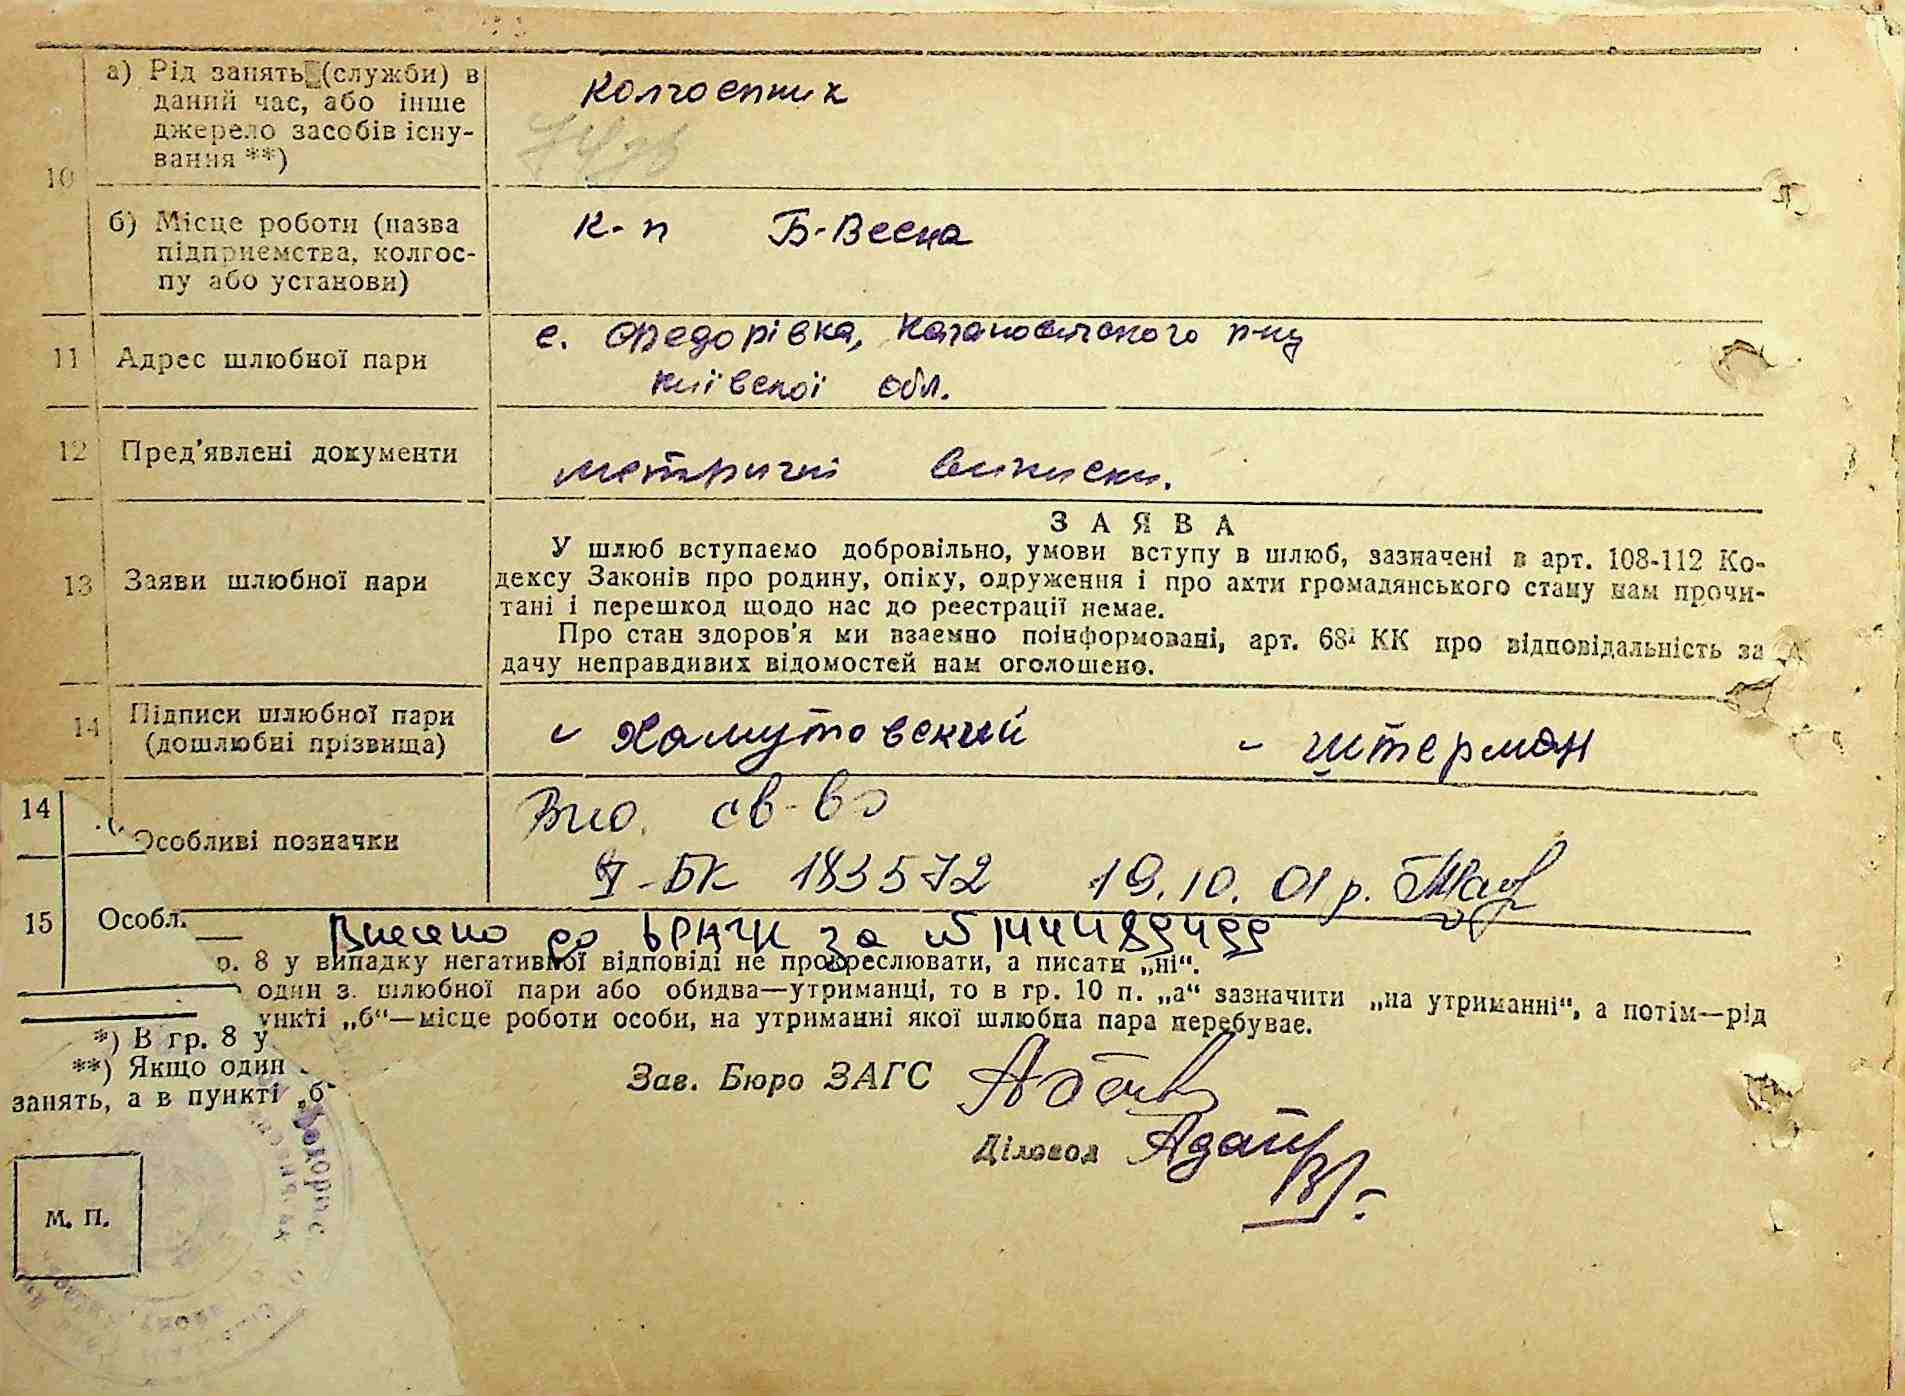 10
а) Рід занять (служби) в
даний час, або інше
джерело засобів існу-
вання **)
Колгоспник
б) Місце роботи (назва
підприємства, колгос-
пу або установи)
к-п Б-Весна
11 Адрес шлюбної пари
с. Федорівка, Кагановичського р-ну
київської обл.
12 Пред'явлені документи
метричні виписки.
13 Заяви шлюбної пари
ЗАЯВА
У шлюб вступаємо добровільно, умови вступу в шлюб, зазначені в арт. 108-112 Ко-
дексу Законів про родину, опіку, одруження і про акти громадянського стану нам прочи-
тані і перешкод щодо нас до реєстрації немає.
Про стан здоров'я ми взаємно поінформовані, арт. 68¹ КК про відповідальність за
дачу неправдивих відомостей нам оголошено.
14 Підписи шлюбної пари
(дошлюбні прізвища)
Хамутовський - Штерман
14
Особливі позначки
св-во
I-БК 183572 19.10.01р.
15 Особл.
Внесено до за № 1444189499
р. 8 у випадку негативної відповіді не прокреслювати, а писати „ні“.
один з шлюбної пари або обидва—утриманці, то в гр. 10 п. „а“ зазначити „на утриманні“, а потім—рід
ункті „б“—місце роботи особи, на утриманні якої шлюбна пара перебуває.
*) В гр. 8 у
**) Якщо один
занять, а в пункті „б
Зав. Бюро ЗАГС
Діловод
М. П.